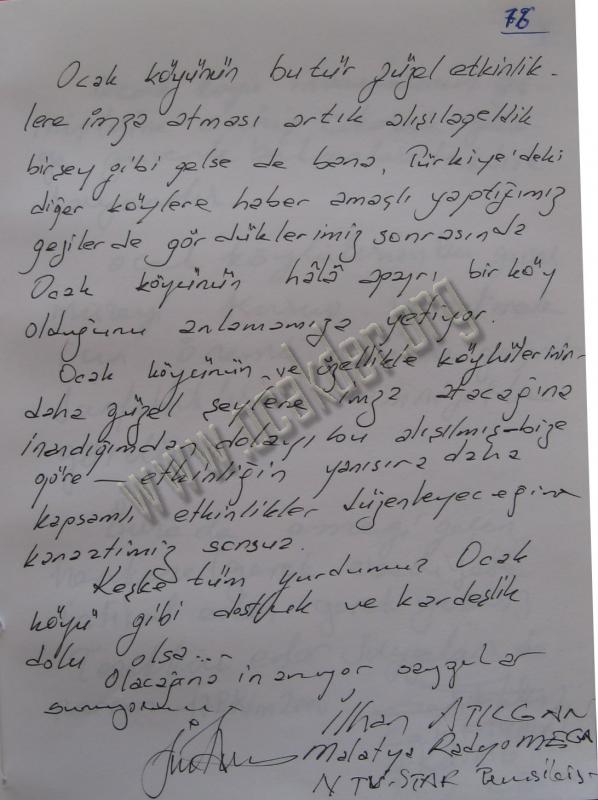 78
Ocak köyünün bu tür güzel etkinlik-
lere imza atması artık alışılageldik
birşey gibi gelse de bana, Türkiye'deki
diğer köylere haber amaçlı yaptığımız
gezilerde gördüklerimiz sonrasında
Ocak köyünün hâlâ apayrı bir köy
olduğunu anlamamıza yetiyor.
Ocak köyünün ve özellikle köylülerinin
daha güzel şeylere imza atacağına
inandığımdan dolayı bu alışılmış-bize
göre- etkinliğin yanısıra daha
kapsamlı etkinlikler düzenleyeceğine
kanaatimiz sonsuz.
Keşke tüm yurdumuz Ocak
köyü gibi dostluk ve kardeşlik
dolu olsa...
Olacağına inanıyor saygılar
sunuyorum
İlhan ATILGAN
Malatya Radyo MEGA
NTV-STAR Temsilcisi
www.ocakder.org